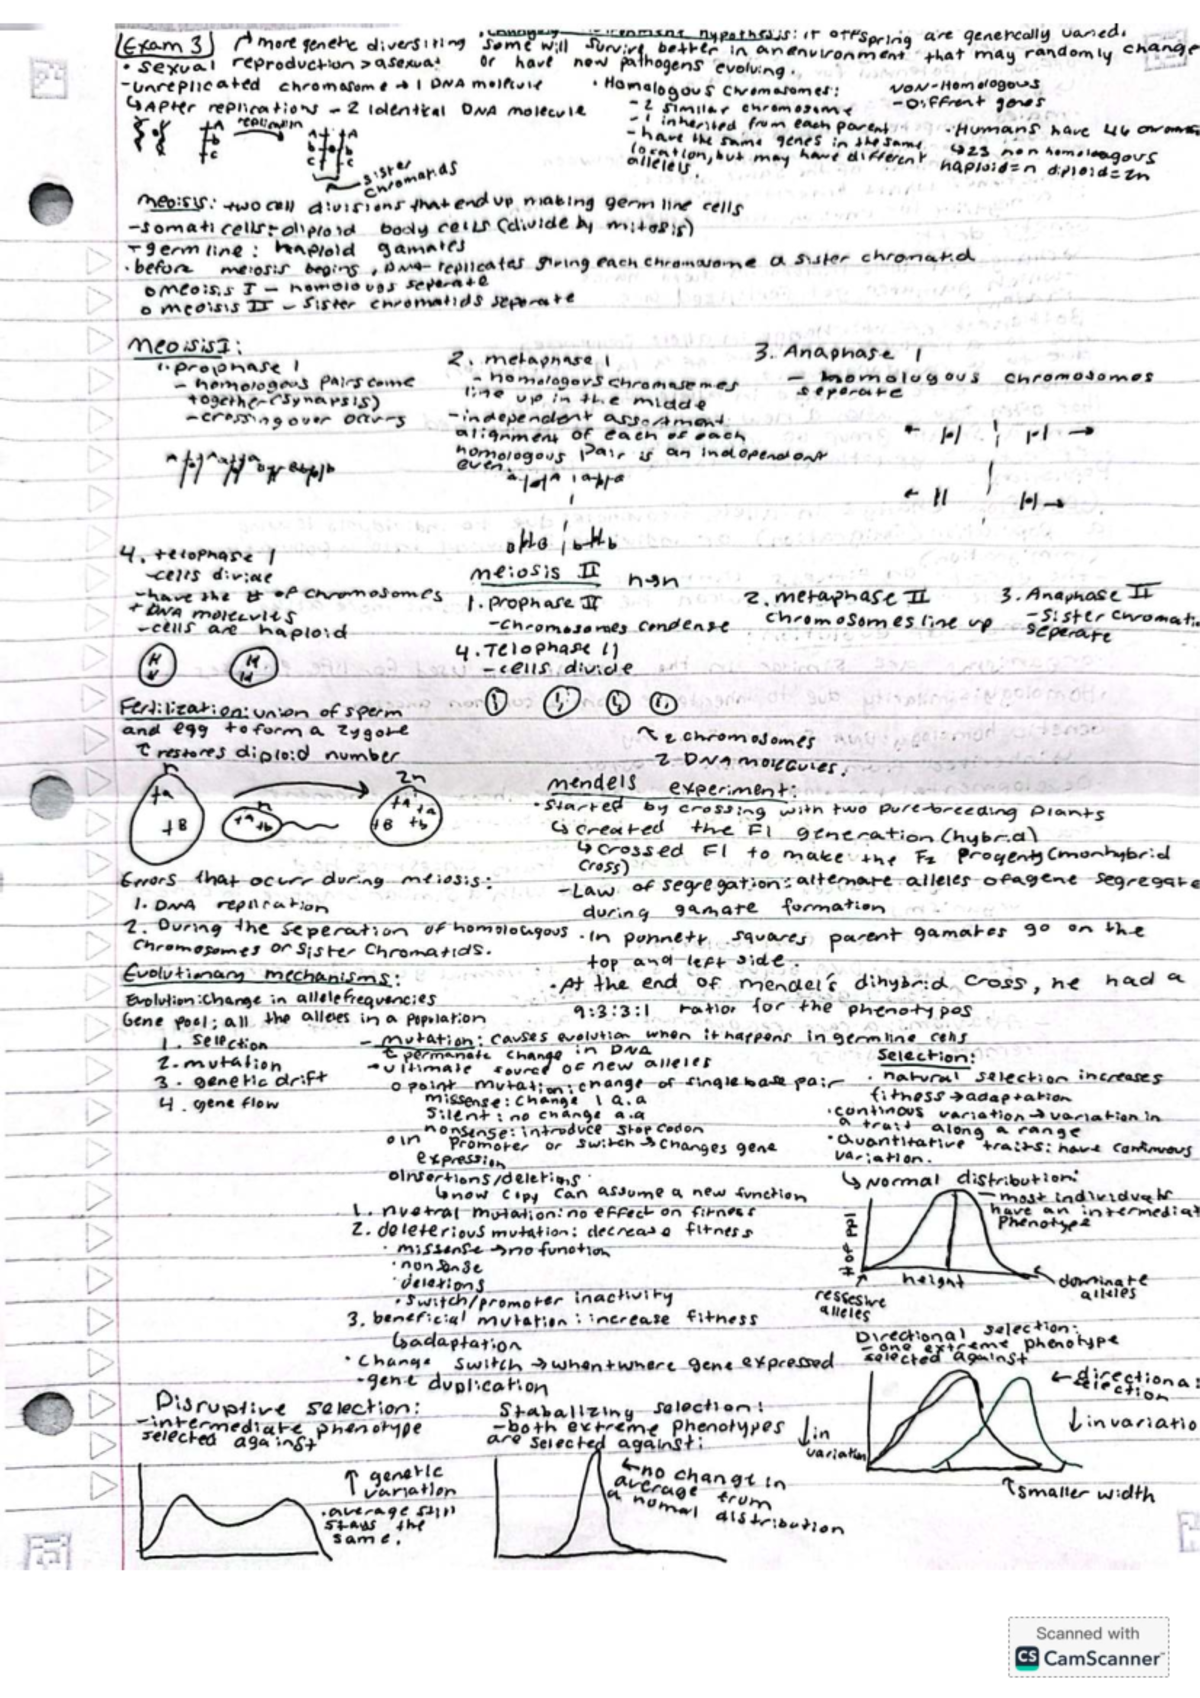 Exam 3
more genetic diversiting
hypothesis: if offspring are genetically varied.
some will survive better in an environment that may randomly change
or have new pathogens evolving.
• sexual reproduction > asexual
- unreplicated chromosome → 1 DNA molecule
↳ After replications - 2 identical DNA molecule
replication
A
b
c
A A
b b
c c
sister chromatids
• Homologous chromosomes:
- 2 similar chromosome
- 1 inherited from each parent
- have the same genes in the same
location, but may have different
allelels.
NON-Homologous
- Different genes
• Humans have 46 chromos
↳ 23 non homoleagous
haploid=n diploid=2n
meosis: two cell divisions that end up making germ line cells
- somati cells: diploid body cells (divide by mitosis)
- germ line: haploid gamates
• before meiosis begins, DNA replicates giving each chromosome a sister chromatid
o meosis I - homolovos seperate
o meoisis II - Sister chromatids seperate
Meoisis I:
1. prophase 1
- homologous pairs come
together (synapsis)
- crossing over occurs
2. metaphase 1
- homologovs chromasemes
line up in the midde
- independent assortment
alignment of each of each
homologous pair is an independent
even.
3. Anaphase 1
- homologous chromosomes
seperate
4. telophase 1
- cells divide
- have the # of chromosomes
+ DNA molecules
- cells are haploid
meiosis II n→n
1. prophase II
- chromosomes condense
2. metaphase II
chromosomes line up
3. Anaphase II
- Sister chromati
seperate
4. Telophase II
- cells divide
↖ 2 chromosomes
2 DNA molecules.
Fertilization: union of sperm
and egg to form a zygote
↑ restores diploid number
n
+a
+B
n
+a +b
2n
+A +a
+B +b
mendels experiment:
• started by crossing with two pure-breeding plants
↳ created the F1 generation (hybrid)
↳ crossed F1 to make the F2 progenty (monhybrid
cross)
- Law of segregation: alternate alleles of a gene segregate
during gamate formation
• In punnett squares parent gamates go on the
top and left side.
• At the end of mendel's dihybrid cross, he had a
9:3:3:1 ratior for the phenotypos
Errors that occurr during meiosis:
1. DNA replication
2. During the seperation of homologous
chromosomes or sister chromatids.
Evolutionary mechanisms:
Evolution: change in allele frequencies
Gene pool: all the alleles in a population
1. Selection
2. mutation
3. genetic drift
4. gene flow
- mutation: causes evolution when it happens in germline cells
↑ permanate change in DNA
- ultimate source of new alleles
o point mutation: change of single base pair
missense: change 1 a.a
silent: no change a.a
nonsense: introduce stop codon
o in promoter or switch → changes gene
expression
o insertions/deletions
↳ now copy can assume a new function
1. nuetral mutation: no effect on fitness
2. deleterious mutation: decrease fitness
• missense → no function
• nonsense
• deletions
• switch/promoter inactivity
3. beneficial mutation: increase fitness
↳ adaptation
• change switch → when + where gene expressed
- gene duplication
Selection:
• natural selection increases
fitness → adaptation
• continous variation → variation in
a trait along a range
• Quantitative traits: have continuous
variation.
↳ Normal distribution:
- most individuals
have an intermediat
phenotype
# of ppl
height
ressesive
alleles
dominate
alleles
Directional selection:
- one extreme phenotype
selected against
↓ in
variation
↓ in variatio
↑ smaller width
Disruptive selection:
- intermediate phenotype
selected against
↑ genetic
variation
• average still
stays the
same.
Stabalizing selection:
- both extreme phenotypes
are selected against:
← no change in
average from
a nomal distribution
Scanned with
CS CamScanner